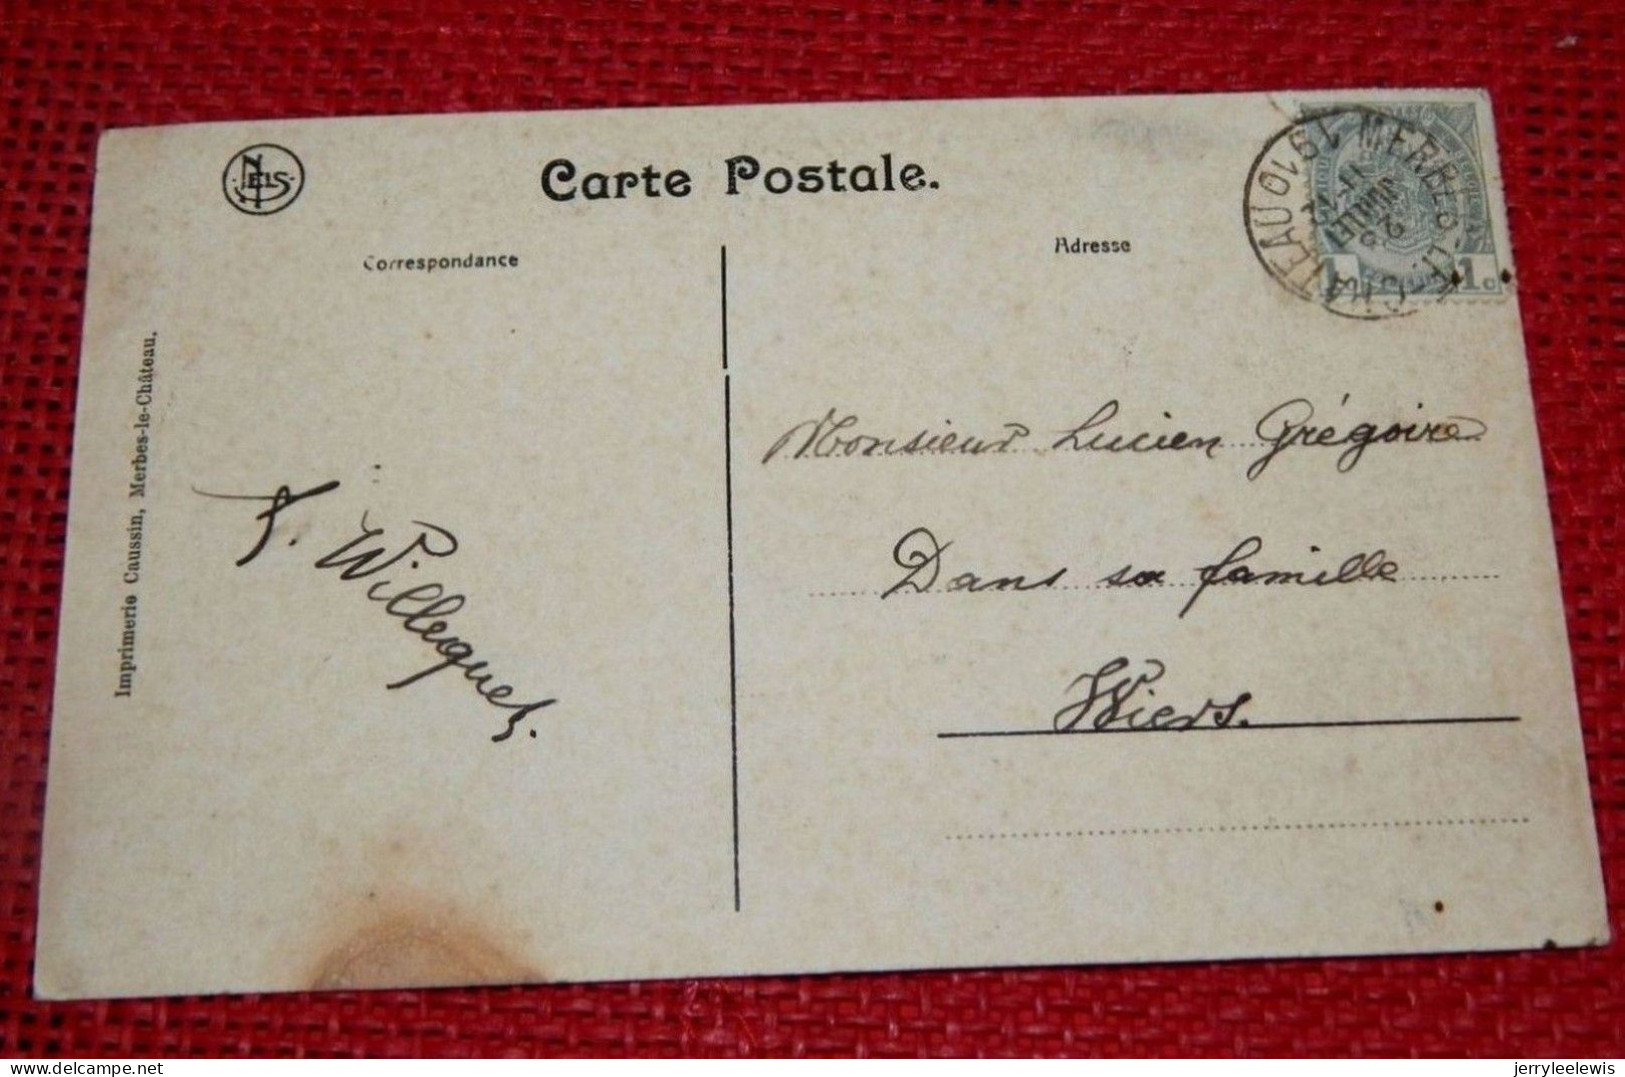 NELS
Carte Postale.
Correspondance
Adresse
MERBES-LE-CHATEAU
1910
JUILLET
1 c
Imprimerie Caussin, Merbes-le-Château.
Monsieur Lucien Grégoire
Dans sa famille
Wiers.
Willequet.
delcampe.net
jerryleelewis